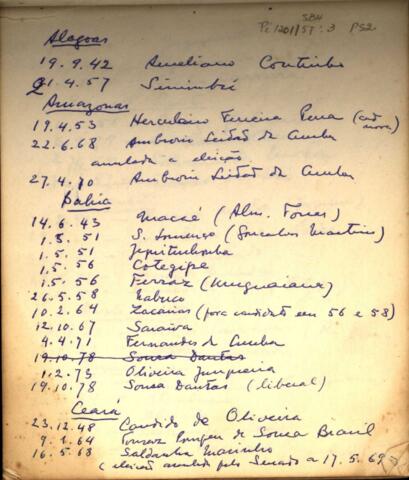 SBH
Pi 1201/57: 3 PS2
Alagoas
19.9.42 Aureliano Coutinho
21.4.57 Sinimbú
Amazonas
19.4.53 Herculano Ferreira Pena (cad nova)
22.6.68 Ambrosio Leitão da Cunha
anulada a eleição
27.4.70 Ambrosio Leitão da Cunha
Bahia
14.6.43 Macaé (Alm. Torres)
1.5.51 S. Lourenço (Goncalves Martins)
1.5.51 Jequitinhonha
1.5.56 Cotegipe
1.5.56 Ferraz (Uruguaiana)
26.5.58 Nabuco
10.2.64 Zacarias (fora candidato em 56 e 58)
12.10.67 Saraiva
4.4.71 Fernandes da Cunha
19.10.78 Sousa Dantas
1.2.73 Oliveira Junqueira
19.10.78 Sousa Dantas (liberal)
Ceará
23.12.48 Candido de Oliveira
9.1.64 Tomaz Pompeu de Sousa Brasil
16.5.68 Saldanha Marinho
(eleição anulada pelo Senado a 17.5.69)